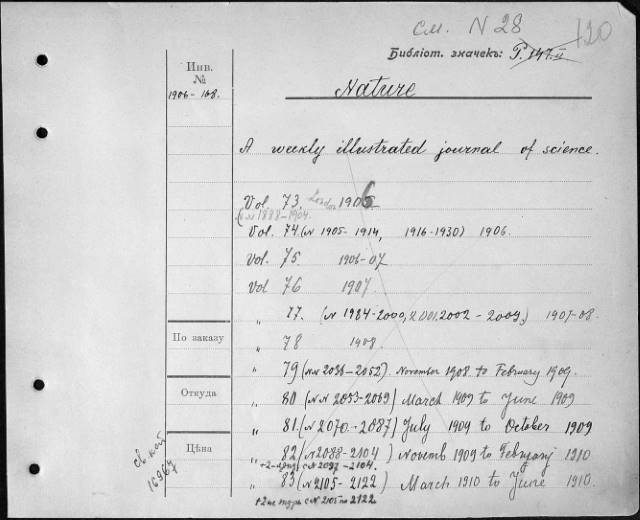 см. N 28 120
Библіот. значекъ: P. 147.II
Инв.
№
1906-168.
Nature
A weekly illustrated journal of science.
Vol. 73. London 1906.
(N 1888-1904.
Vol. 74. (N 1905-1914, 1916-1930) 1906.
Vol. 75 1906-07
Vol 76 1907.
„ 77. (N 1984-2000, 2001, 2002-2009,) 1907-08.
По заказу
„ 78 1908.
„ 79 (NN 2036-2052). November 1908 to February 1909.
Откуда
„ 80 (NN 2053-2069) March 1909 to June 1909
„ 81. (N 2070-2087) July 1909 to October 1909
Цѣна
„ 82 (N 2088-2104) Novemb 1909 to February 1910
c N 2087-2104.
„ 83 (N 2105-2122) March 1910 to June 1910.
c N 2105 по 2122
св кат
16967